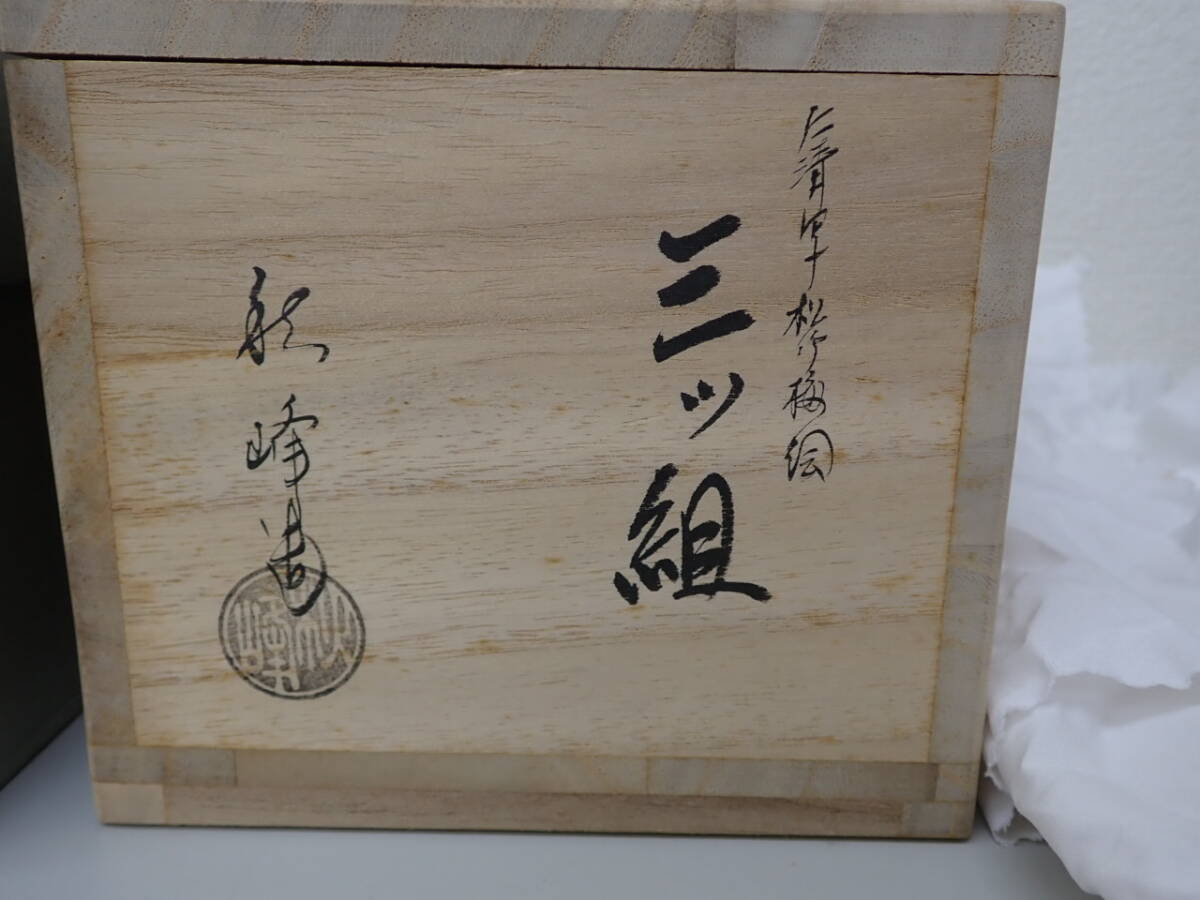 仁清写 松竹梅絵
三ッ組
秋峰造
秋峰